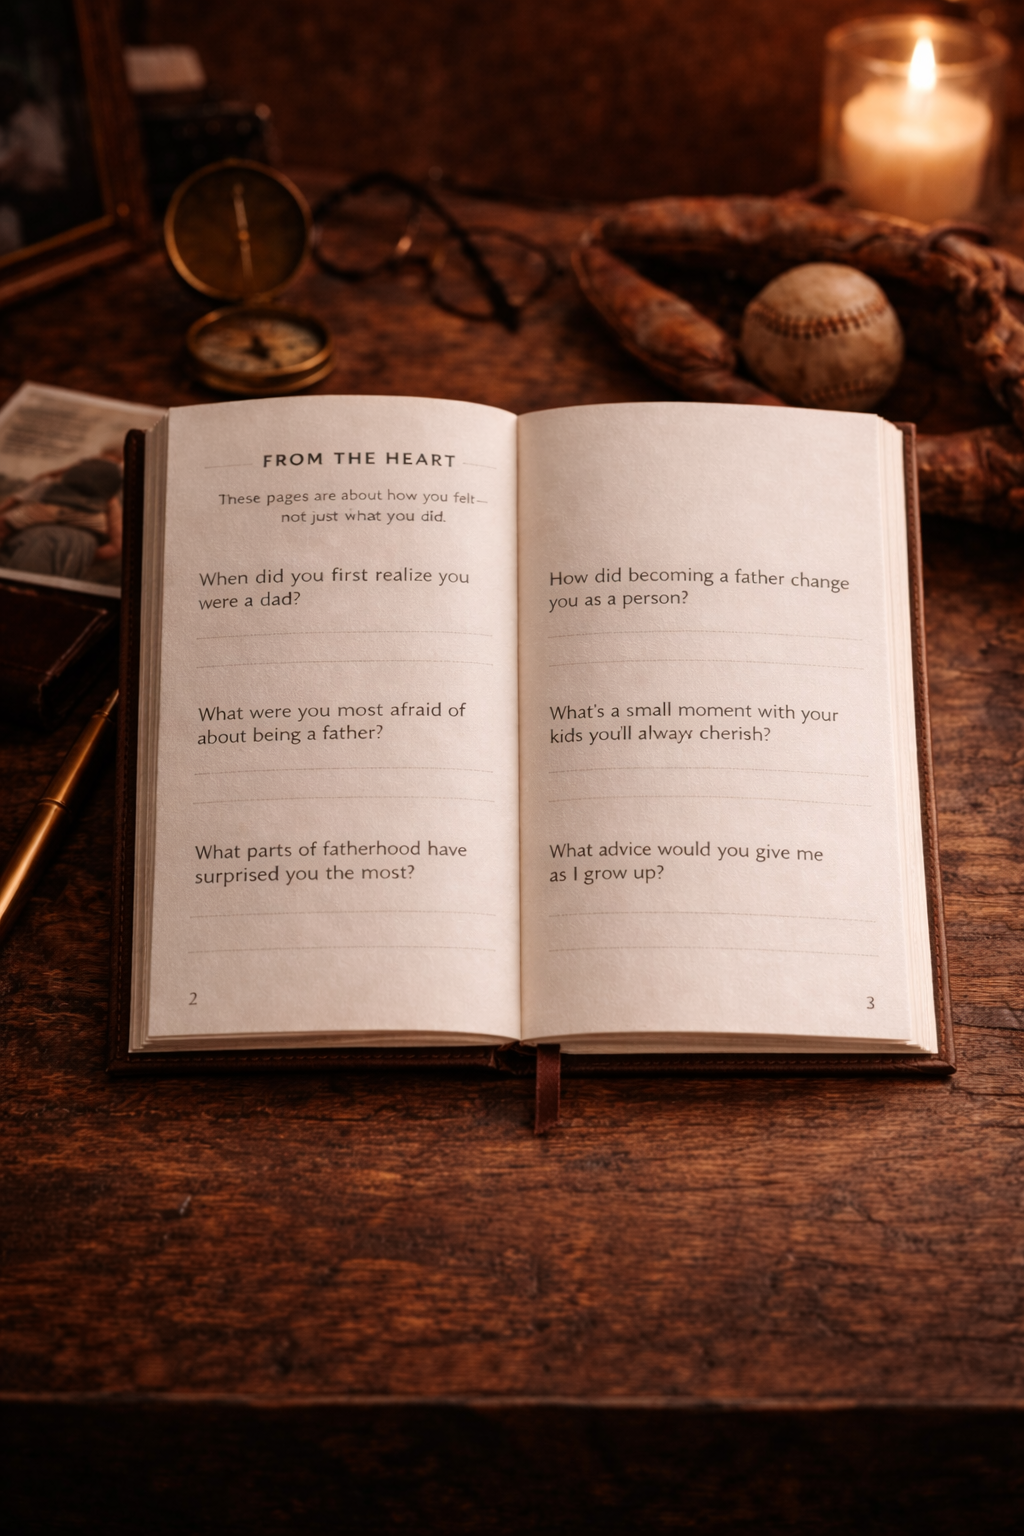 FROM THE HEART
These pages are about how you felt—
not just what you did.
When did you first realize you
were a dad?
What were you most afraid of
about being a father?
What parts of fatherhood have
surprised you the most?
2
How did becoming a father change
you as a person?
What's a small moment with your
kids you'll always cherish?
What advice would you give me
as I grow up?
3